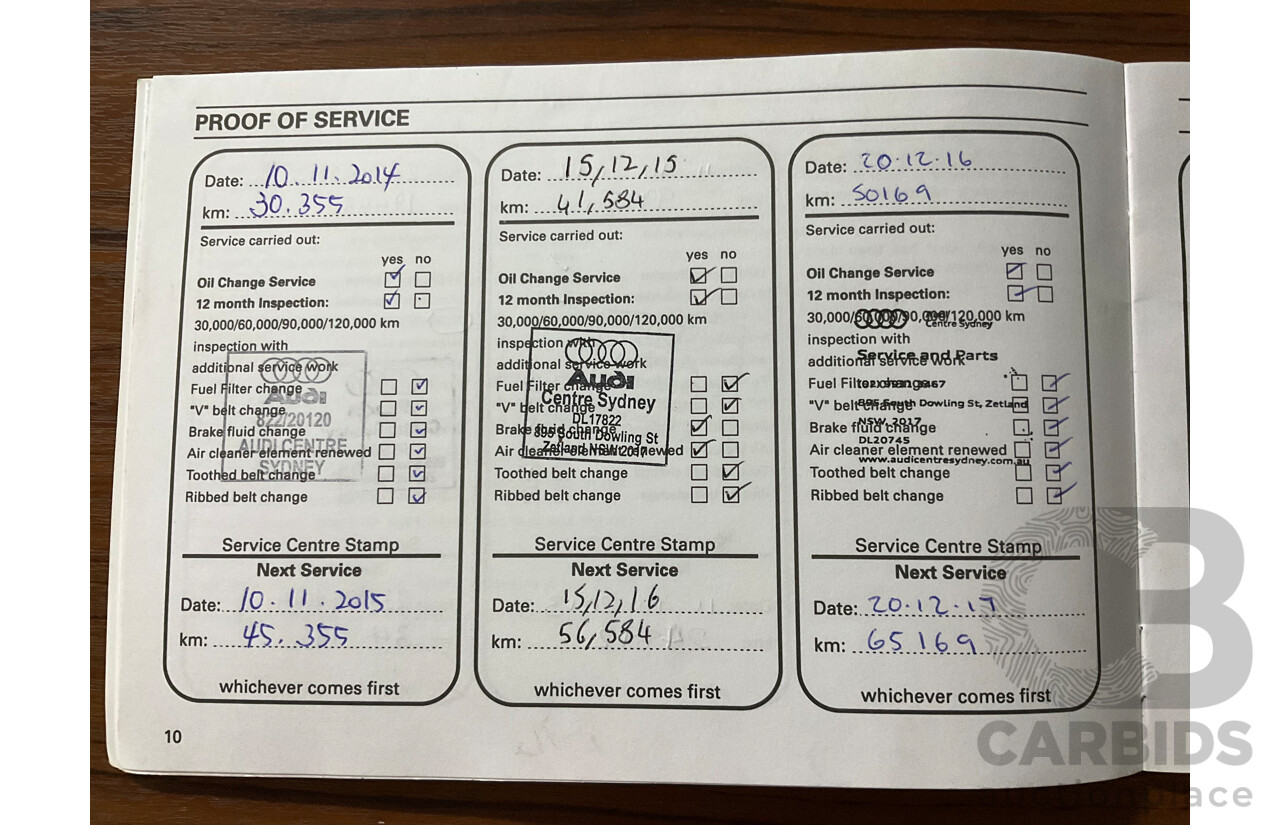 PROOF OF SERVICE
Date: 10.11.2014
km: 30.355
Service carried out:
yes no
Oil Change Service
12 month Inspection:
30,000/60,000/90,000/120,000 km
inspection with
additional service work
Fuel Filter change
"V" belt change
Brake fluid change
Air cleaner element renewed
Toothed belt change
Ribbed belt change
Audi
822/20120
AUDI CENTRE
SYDNEY
Service Centre Stamp
Next Service
Date: 10.11.2015
km: 45.355
whichever comes first
Date: 15,12,15
km: 41,584
Service carried out:
yes no
Oil Change Service
12 month Inspection:
30,000/60,000/90,000/120,000 km
inspection with
additional service work
Fuel Filter change
"V" belt change
Brake fluid change
Air cleaner element renewed
Toothed belt change
Ribbed belt change
Audi
Centre Sydney
DL17822
895 South Dowling St
Zetland NSW 2017
Service Centre Stamp
Next Service
Date: 15,12,16
km: 56,584
whichever comes first
Date: 20.12.16
km: 50169
Service carried out:
yes no
Oil Change Service
12 month Inspection:
30,000/60,000/90,000/120,000 km
inspection with
additional service work
Fuel Filter change
"V" belt change
Brake fluid change
Air cleaner element renewed
Toothed belt change
Ribbed belt change
Centre Sydney
Service and Parts
895 South Dowling St, Zetland
NSW 2017
DL20745
www.audicentresydney.com.au
Service Centre Stamp
Next Service
Date: 20.12.17
km: 65169
whichever comes first
10
CARBIDS